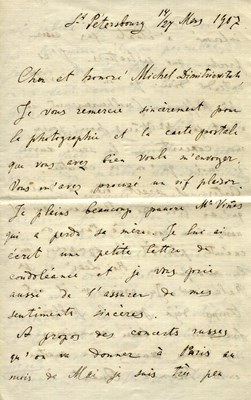 St Petersbourg 14/27 Mars 1907
Cher et honoré Michel Dimitrievitch
Je vous remercie sincèrement pour
la photographie et la carte postale
que vous avez bien voulu m'envoyer.
Vous m'avez procuré un vif plaisir.
Je plains beaucoup pauvre Mr
qui a perdu sa mère. Je lui ai
écrit une petite lettre de
condoléance et je vous prie
aussi de l'assurer de mes
sentiments sincères.
A propos des concerts russes
qu'on va donner à Paris au
mois de Mai je suis très peu